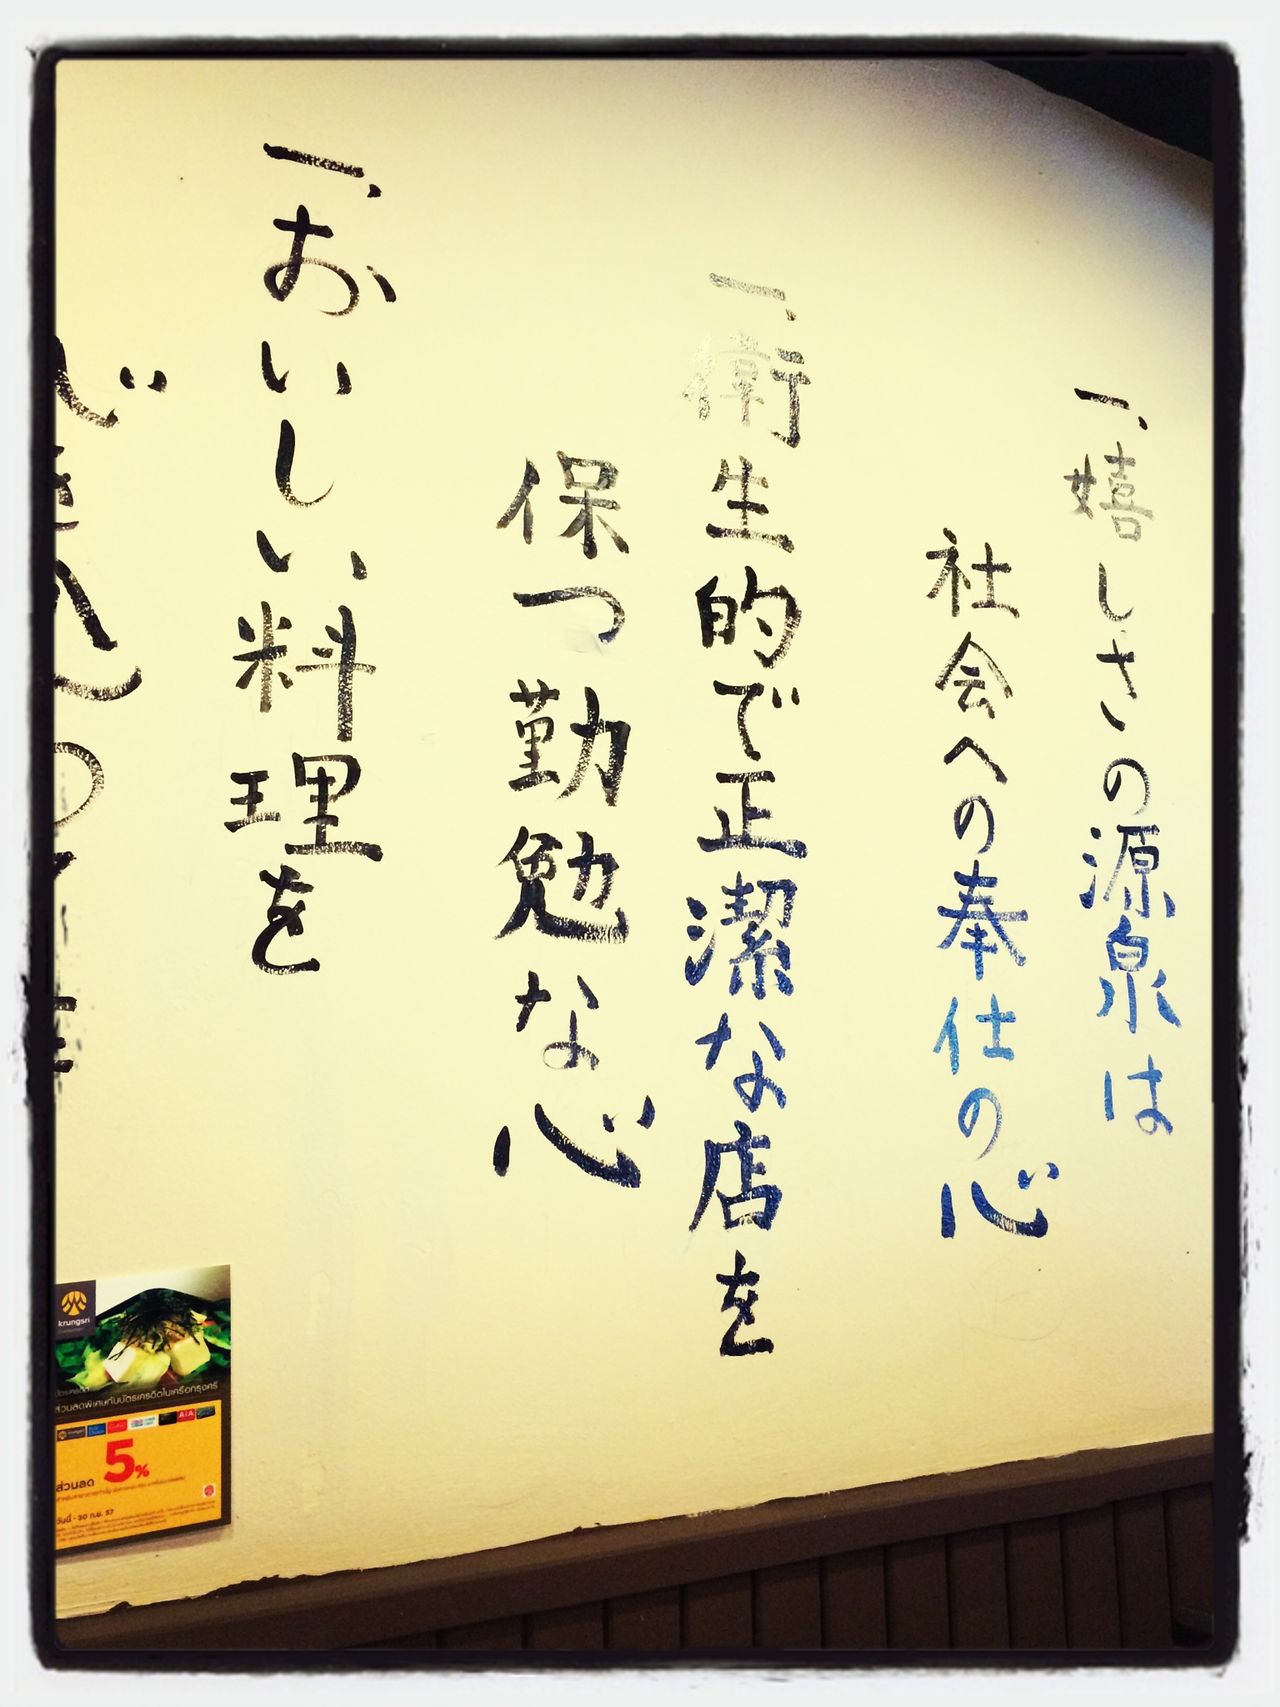 一、嬉しさの源泉は
社会への奉仕の心
一、衛生的で正潔な店を
保つ勤勉な心
一、おいしい料理を
心
krungsri
ส่วนลดพิเศษกับบัตรเครดิตในเครือกรุงศรี
AIA
ส่วนลด 5%
วันนี้ - 30 ก.ย. 57